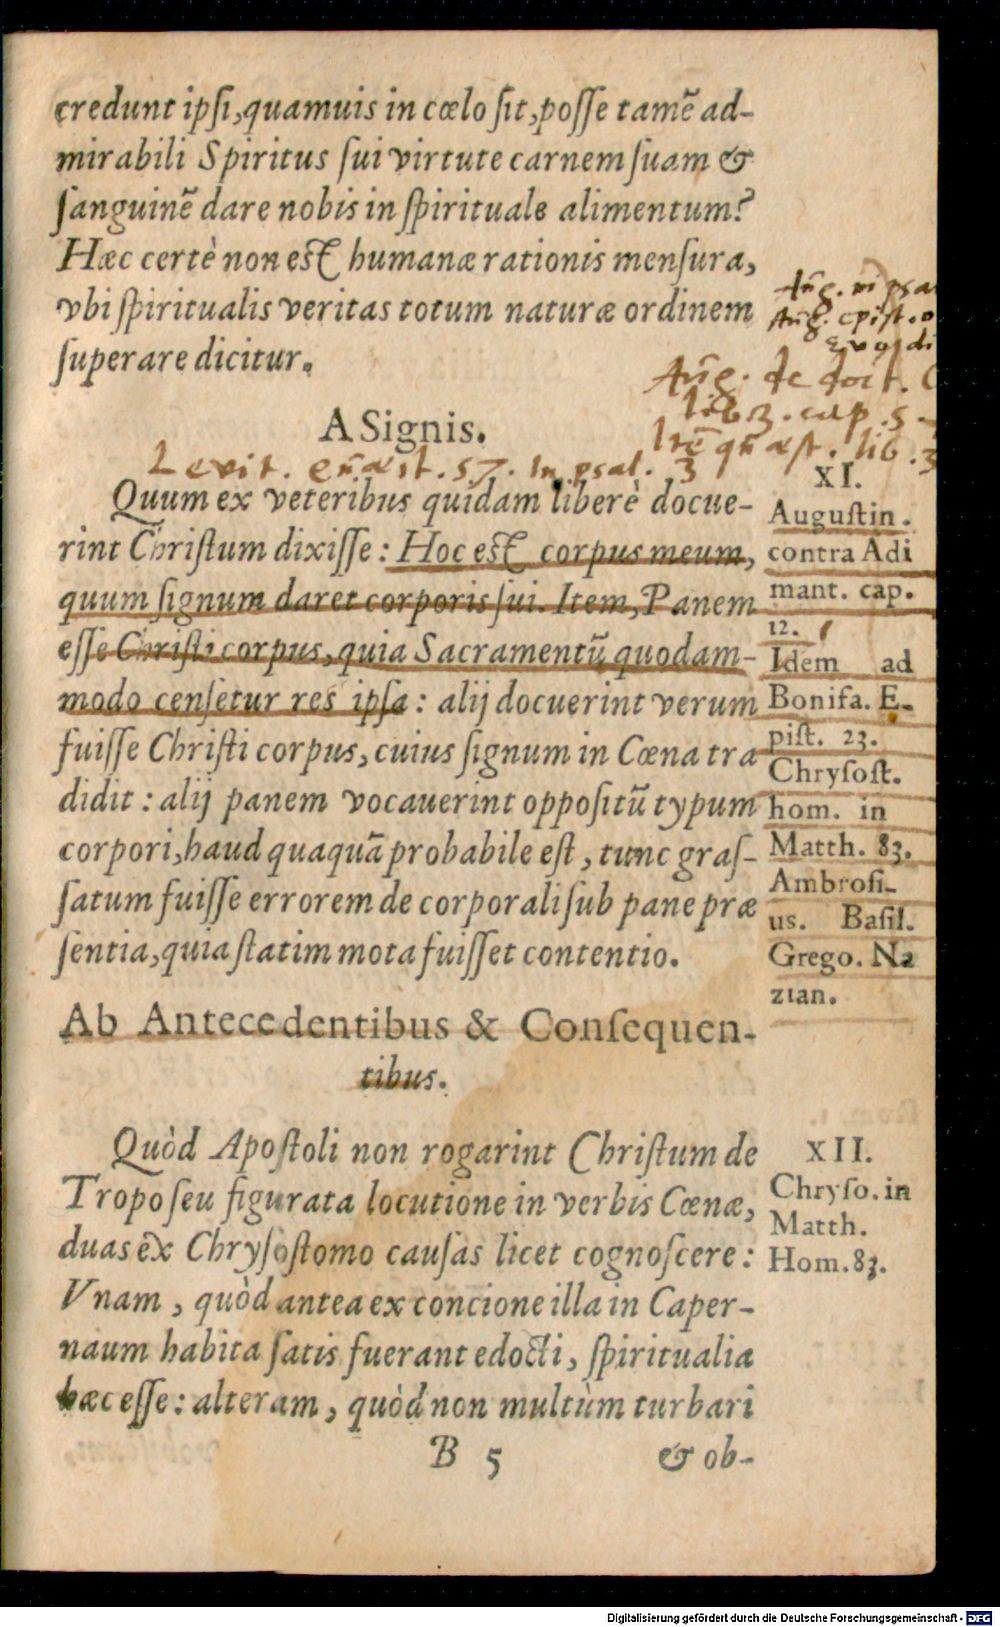 credunt ipſi, quamuis in cœlo ſit, poſſe tamẽ ad-
mirabili Spiritus ſui virtute carnem ſuam &
ſanguinẽ dare nobis in ſpirituale alimentum?
Hæc certè non eſt humanæ rationis menſura,
vbi ſpiritualis veritas totum naturæ ordinem
ſuperare dicitur.
Aug. de doct.
lib 3. cap. 5
lib. 3
A Signis.
Levit. quæst. 57. In psal. 3
Quum ex veteribus quidam liberè docue-
rint Chriſtum dixiſſe: Hoc eſt corpus meum,
quum ſignum daret corporis ſui. Item, Panem
eſſe Chriſti corpus, quia Sacramentũ quodam-
modo cenſetur res ipſa: alij docuerint verum
fuiſſe Chriſti corpus, cuius ſignum in Cœna tra
didit: alij panem vocauerint oppoſitũ typum
corpori, haud quaquã probabile eſt, tunc graſ-
ſatum fuiſſe errorem de corporali ſub pane præ
ſentia, quia ſtatim mota fuiſſet contentio.
XI.
Auguſtin.
contra Adi
mant. cap.
12.
Idem ad
Bonifa. E-
piſt. 23.
Chryſoſt.
hom. in
Matth. 83.
Ambroſi-
us. Baſil.
Grego. Na
zian.
Ab Antecedentibus & Conſequen-
tibus.
Quòd Apoſtoli non rogarint Chriſtum de
Tropo ſeu figurata locutione in verbis Cœnæ,
duas ẽx Chryſoſtomo cauſas licet cognoſcere:
Vnam, quòd antea ex concione illa in Caper-
naum habita ſatis fuerant edocti, ſpiritualia
hæc eſſe: alteram, quòd non multùm turbari
XII.
Chryſo. in
Matth.
Hom. 83.
B 5
& ob-
Digitalisierung gefördert durch die Deutsche Forschungsgemeinschaft - DFG